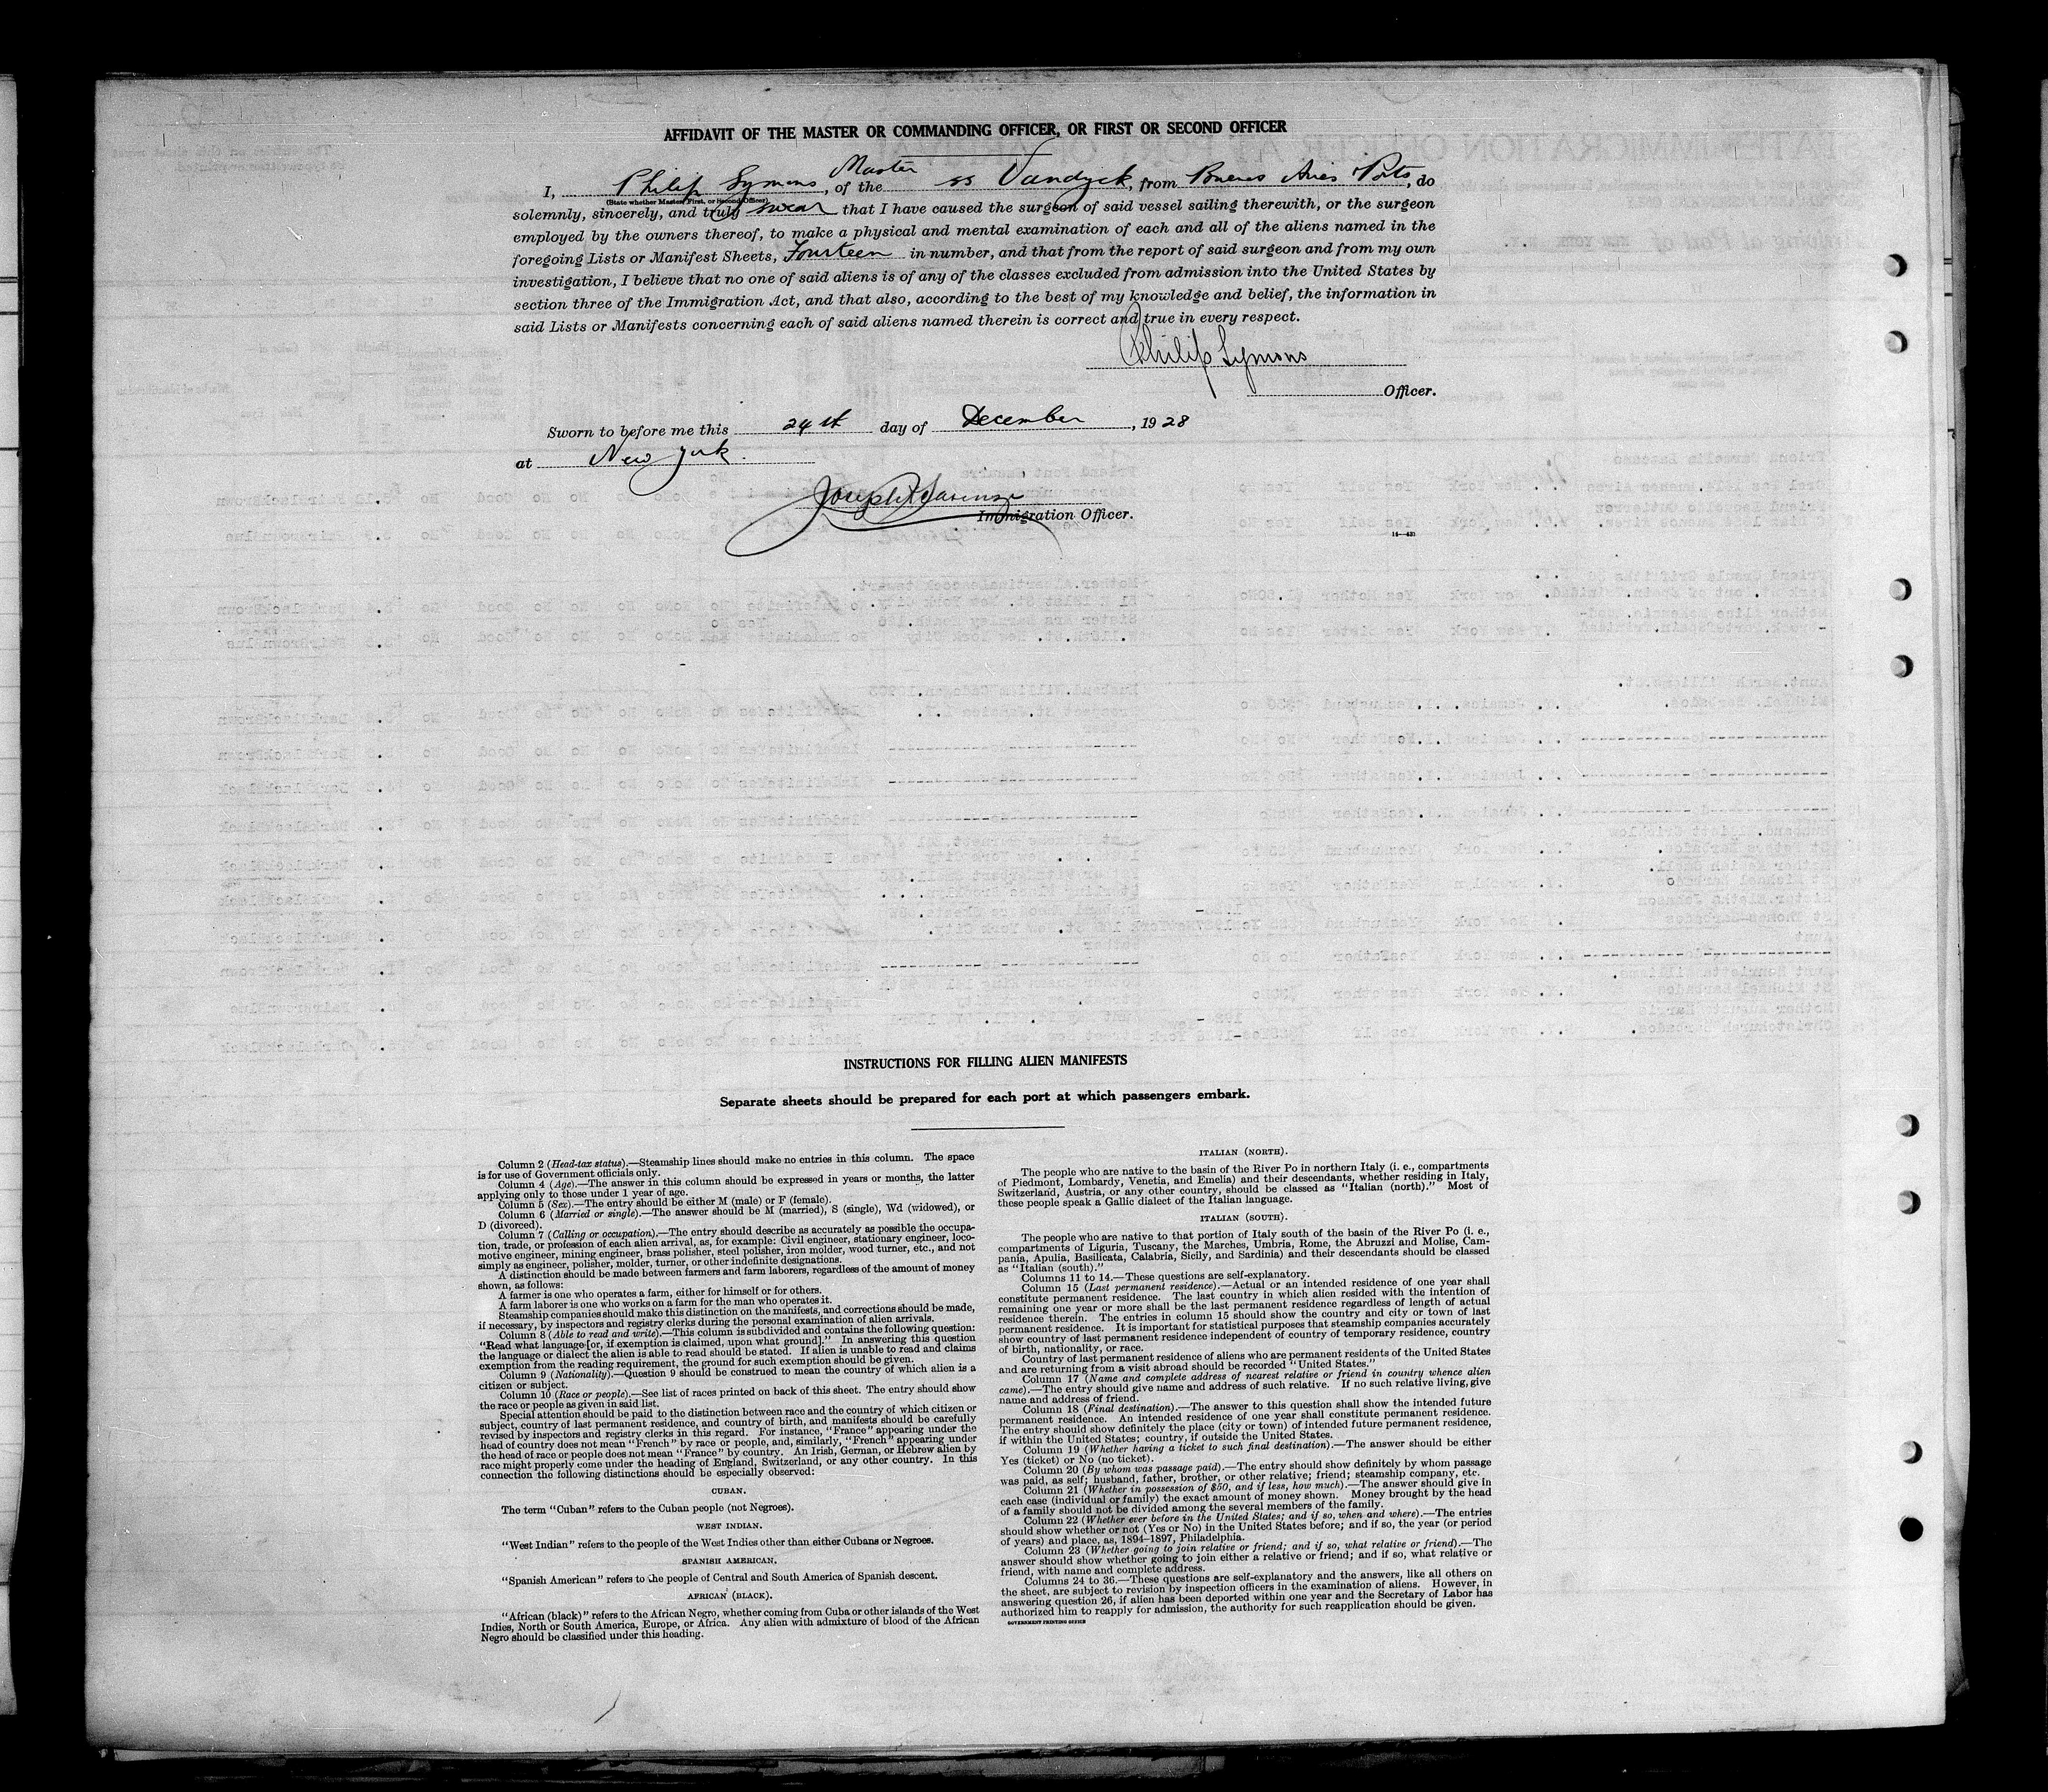 AFFIDAVIT OF THE MASTER OR COMMANDING OFFICER, OR FIRST OR SECOND OFFICER
Master
I, Philip Symons, of the ss Vandyck, from Buenos Aires Pots, do
(State whether Master, First, or Second Officer)
solemnly, sincerely, and truly swear that I have caused the surgeon of said vessel sailing therewith, or the surgeon
employed by the owners thereof, to make a physical and mental examination of each and all of the aliens named in the
foregoing Lists or Manifest Sheets, Fourteen in number, and that from the report of said surgeon and from my own
investigation, I believe that no one of said aliens is of any of the classes excluded from admission into the United States by
section three of the Immigration Act, and that also, according to the best of my knowledge and belief, the information in
said Lists or Manifests concerning each of said aliens named therein is correct and true in every respect.
Philip Symons
Officer.
Sworn to before me this 24st day of December, 1928
at New York.
Joseph
Immigration Officer.
INSTRUCTIONS FOR FILLING ALIEN MANIFESTS
Separate sheets should be prepared for each port at which passengers embark.
Column 2 (Head-tax status).—Steamship lines should make no entries in this column. The space
is for use of Government officials only.
Column 4 (Age).—The answer in this column should be expressed in years or months, the latter
applying only to those under 1 year of age.
Column 5 (Sex).—The entry should be either M (male) or F (female).
Column 6 (Married or single).—The answer should be M (married), S (single), Wd (widowed), or
D (divorced).
Column 7 (Calling or occupation).—The entry should describe as accurately as possible the occupa-
tion, trade, or profession of each alien arrival, as, for example: Civil engineer, stationary engineer, loco-
motive engineer, mining engineer, brass polisher, steel polisher, iron molder, wood turner, etc., and not
simply as engineer, polisher, molder, turner, or other indefinite designations.
A distinction should be made between farmers and farm laborers, regardless of the amount of money
shown, as follows:
A farmer is one who operates a farm, either for himself or for others.
A farm laborer is one who works on a farm for the man who operates it.
Steamship companies should make this distinction on the manifests, and corrections should be made,
if necessary, by inspectors and registry clerks during the personal examination of alien arrivals.
Column 8 (Able to read and write).—This column is subdivided and contains the following question:
"Read what language [or, if exemption is claimed, upon what ground]." In answering this question
the language or dialect the alien is able to read should be stated. If alien is unable to read and claims
exemption from the reading requirement, the ground for such exemption should be given.
Column 9 (Nationality).—Question 9 should be construed to mean the country of which alien is a
citizen or subject.
Column 10 (Race or people).—See list of races printed on back of this sheet. The entry should show
the race or people as given in said list.
Special attention should be paid to the distinction between race and the country of which citizen or
subject, country of last permanent residence, and country of birth, and manifests should be carefully
revised by inspectors and registry clerks in this regard. For instance, "France" appearing under the
head of country does not mean "French" by race or people, and, similarly, "French" appearing under
the head of race or people does not mean "France" by country. An Irish, German, or Hebrew alien by
race might properly come under the heading of England, Switzerland, or any other country. In this
connection the following distinctions should be especially observed:
CUBAN.
The term "Cuban" refers to the Cuban people (not Negroes).
WEST INDIAN.
"West Indian" refers to the people of the West Indies other than either Cubans or Negroes.
SPANISH AMERICAN.
"Spanish American" refers to the people of Central and South America of Spanish descent.
AFRICAN (BLACK).
"African (black)" refers to the African Negro, whether coming from Cuba or other islands of the West
Indies, North or South America, Europe, or Africa. Any alien with admixture of blood of the African
Negro should be classified under this heading.
ITALIAN (NORTH).
The people who are native to the basin of the River Po in northern Italy (i. e., compartments
of Piedmont, Lombardy, Venetia, and Emelia) and their descendants, whether residing in Italy,
Switzerland, Austria, or any other country, should be classed as "Italian (north)." Most of
these people speak a Gallic dialect of the Italian language.
ITALIAN (SOUTH).
The people who are native to that portion of Italy south of the basin of the River Po (i. e.,
compartments of Liguria, Tuscany, the Marches, Umbria, Rome, the Abruzzi and Molise, Cam-
pania, Apulia, Basilicata, Calabria, Sicily, and Sardinia) and their descendants should be classed
as "Italian (south)."
Columns 11 to 14.—These questions are self-explanatory.
Column 15 (Last permanent residence).—Actual or an intended residence of one year shall
constitute permanent residence. The last country in which alien resided with the intention of
remaining one year or more shall be the last permanent residence regardless of length of actual
residence therein. The entries in column 15 should show the country and city or town of last
permanent residence. It is important for statistical purposes that steamship companies accurately
show country of last permanent residence independent of country of temporary residence, country
of birth, nationality, or race.
Country of last permanent residence of aliens who are permanent residents of the United States
and are returning from a visit abroad should be recorded "United States."
Column 17 (Name and complete address of nearest relative or friend in country whence alien
came).—The entry should give name and address of such relative. If no such relative living, give
name and address of friend.
Column 18 (Final destination).—The answer to this question shall show the intended future
permanent residence. An intended residence of one year shall constitute permanent residence.
The entry should show definitely the place (city or town) of intended future permanent residence,
if within the United States; country, if outside the United States.
Column 19 (Whether having a ticket to such final destination).—The answer should be either
Yes (ticket) or No (no ticket).
Column 20 (By whom was passage paid).—The entry should show definitely by whom passage
was paid, as self; husband, father, brother, or other relative; friend; steamship company, etc.
Column 21 (Whether in possession of $50, and if less, how much).—The answer should give in
each case (individual or family) the exact amount of money shown. Money brought by the head
of a family should not be divided among the several members of the family.
Column 22 (Whether ever before in the United States; and if so, when and where).—The entries
should show whether or not (Yes or No) in the United States before; and if so, the year (or period
of years) and place, as, 1894-1897, Philadelphia.
Column 23 (Whether going to join relative or friend; and if so, what relative or friend).—The
answer should show whether going to join either a relative or friend; and if so, what relative or
friend, with name and complete address.
Columns 24 to 36.—These questions are self-explanatory and the answers, like all others on
the sheet, are subject to revision by inspection officers in the examination of aliens. However, in
answering question 26, if alien has been deported within one year and the Secretary of Labor has
authorized him to reapply for admission, the authority for such reapplication should be given.
GOVERNMENT PRINTING OFFICE